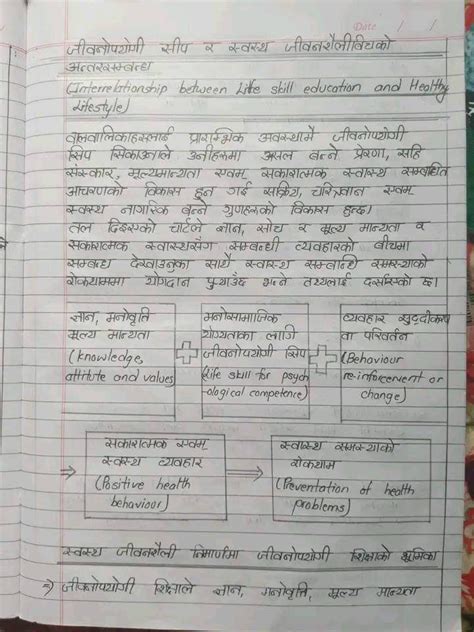 Date / /
जीवनोपयोगी सीप र स्वस्थ जीवनशैलीविचको
अन्तरसम्बन्ध
(Interrelationship between Life skill education and Healthy
lifestyle)
बालबालिकाहरूलाई प्रारम्भिक अवस्थामै जीवनोपयोगी
सिप सिकाउनाले उनीहरूमा असल बन्ने प्रेरणा, सहि
संस्कार, मूल्यमान्यता एवम् सकारात्मक स्वास्थ्य सम्बन्धित
आचरणको विकास हुन गई सक्रिय, चरित्रवान एवम्
स्वस्थ नागरिक बन्ने गुणहरूको विकास हुन्छ।
तल दिइएको चार्टले ज्ञान, सोच र मूल्य मान्यता र
सकारात्मक स्वास्थ्यसँग सम्बन्धी व्यवहारको बीचमा
सम्बन्ध देखाउनुका साथै स्वास्थ्य सम्बन्धि समस्याको
रोकथाममा योगदान पुर्‍याउँछ भन्ने तथ्यलाई दर्साएको छ।
ज्ञान, मनोवृत्ति
मूल्य मान्यता
(knowledge,
attitute and values)
+
मनोसामाजिक
योग्यताका लागि
जीवनोपयोगी सिप
(life skill for psych
-ological competence)
+
व्यवहार सुदृढीकरण
वा परिवर्तन
(Behaviour
re-inforcement or
change)
⇒
सकारात्मक एवम्
स्वस्थ व्यवहार
(Positive health
behaviour)
⇒
स्वास्थ्य समस्याको
रोकथाम
(Preventation of health
problems)
स्वस्थ जीवनशैली निर्माणमा जीवनोपयोगी शिक्षाको भूमिका
⇒ जीवनोपयोगी शिक्षाले ज्ञान, मनोवृत्ति, मूल्य मान्यता